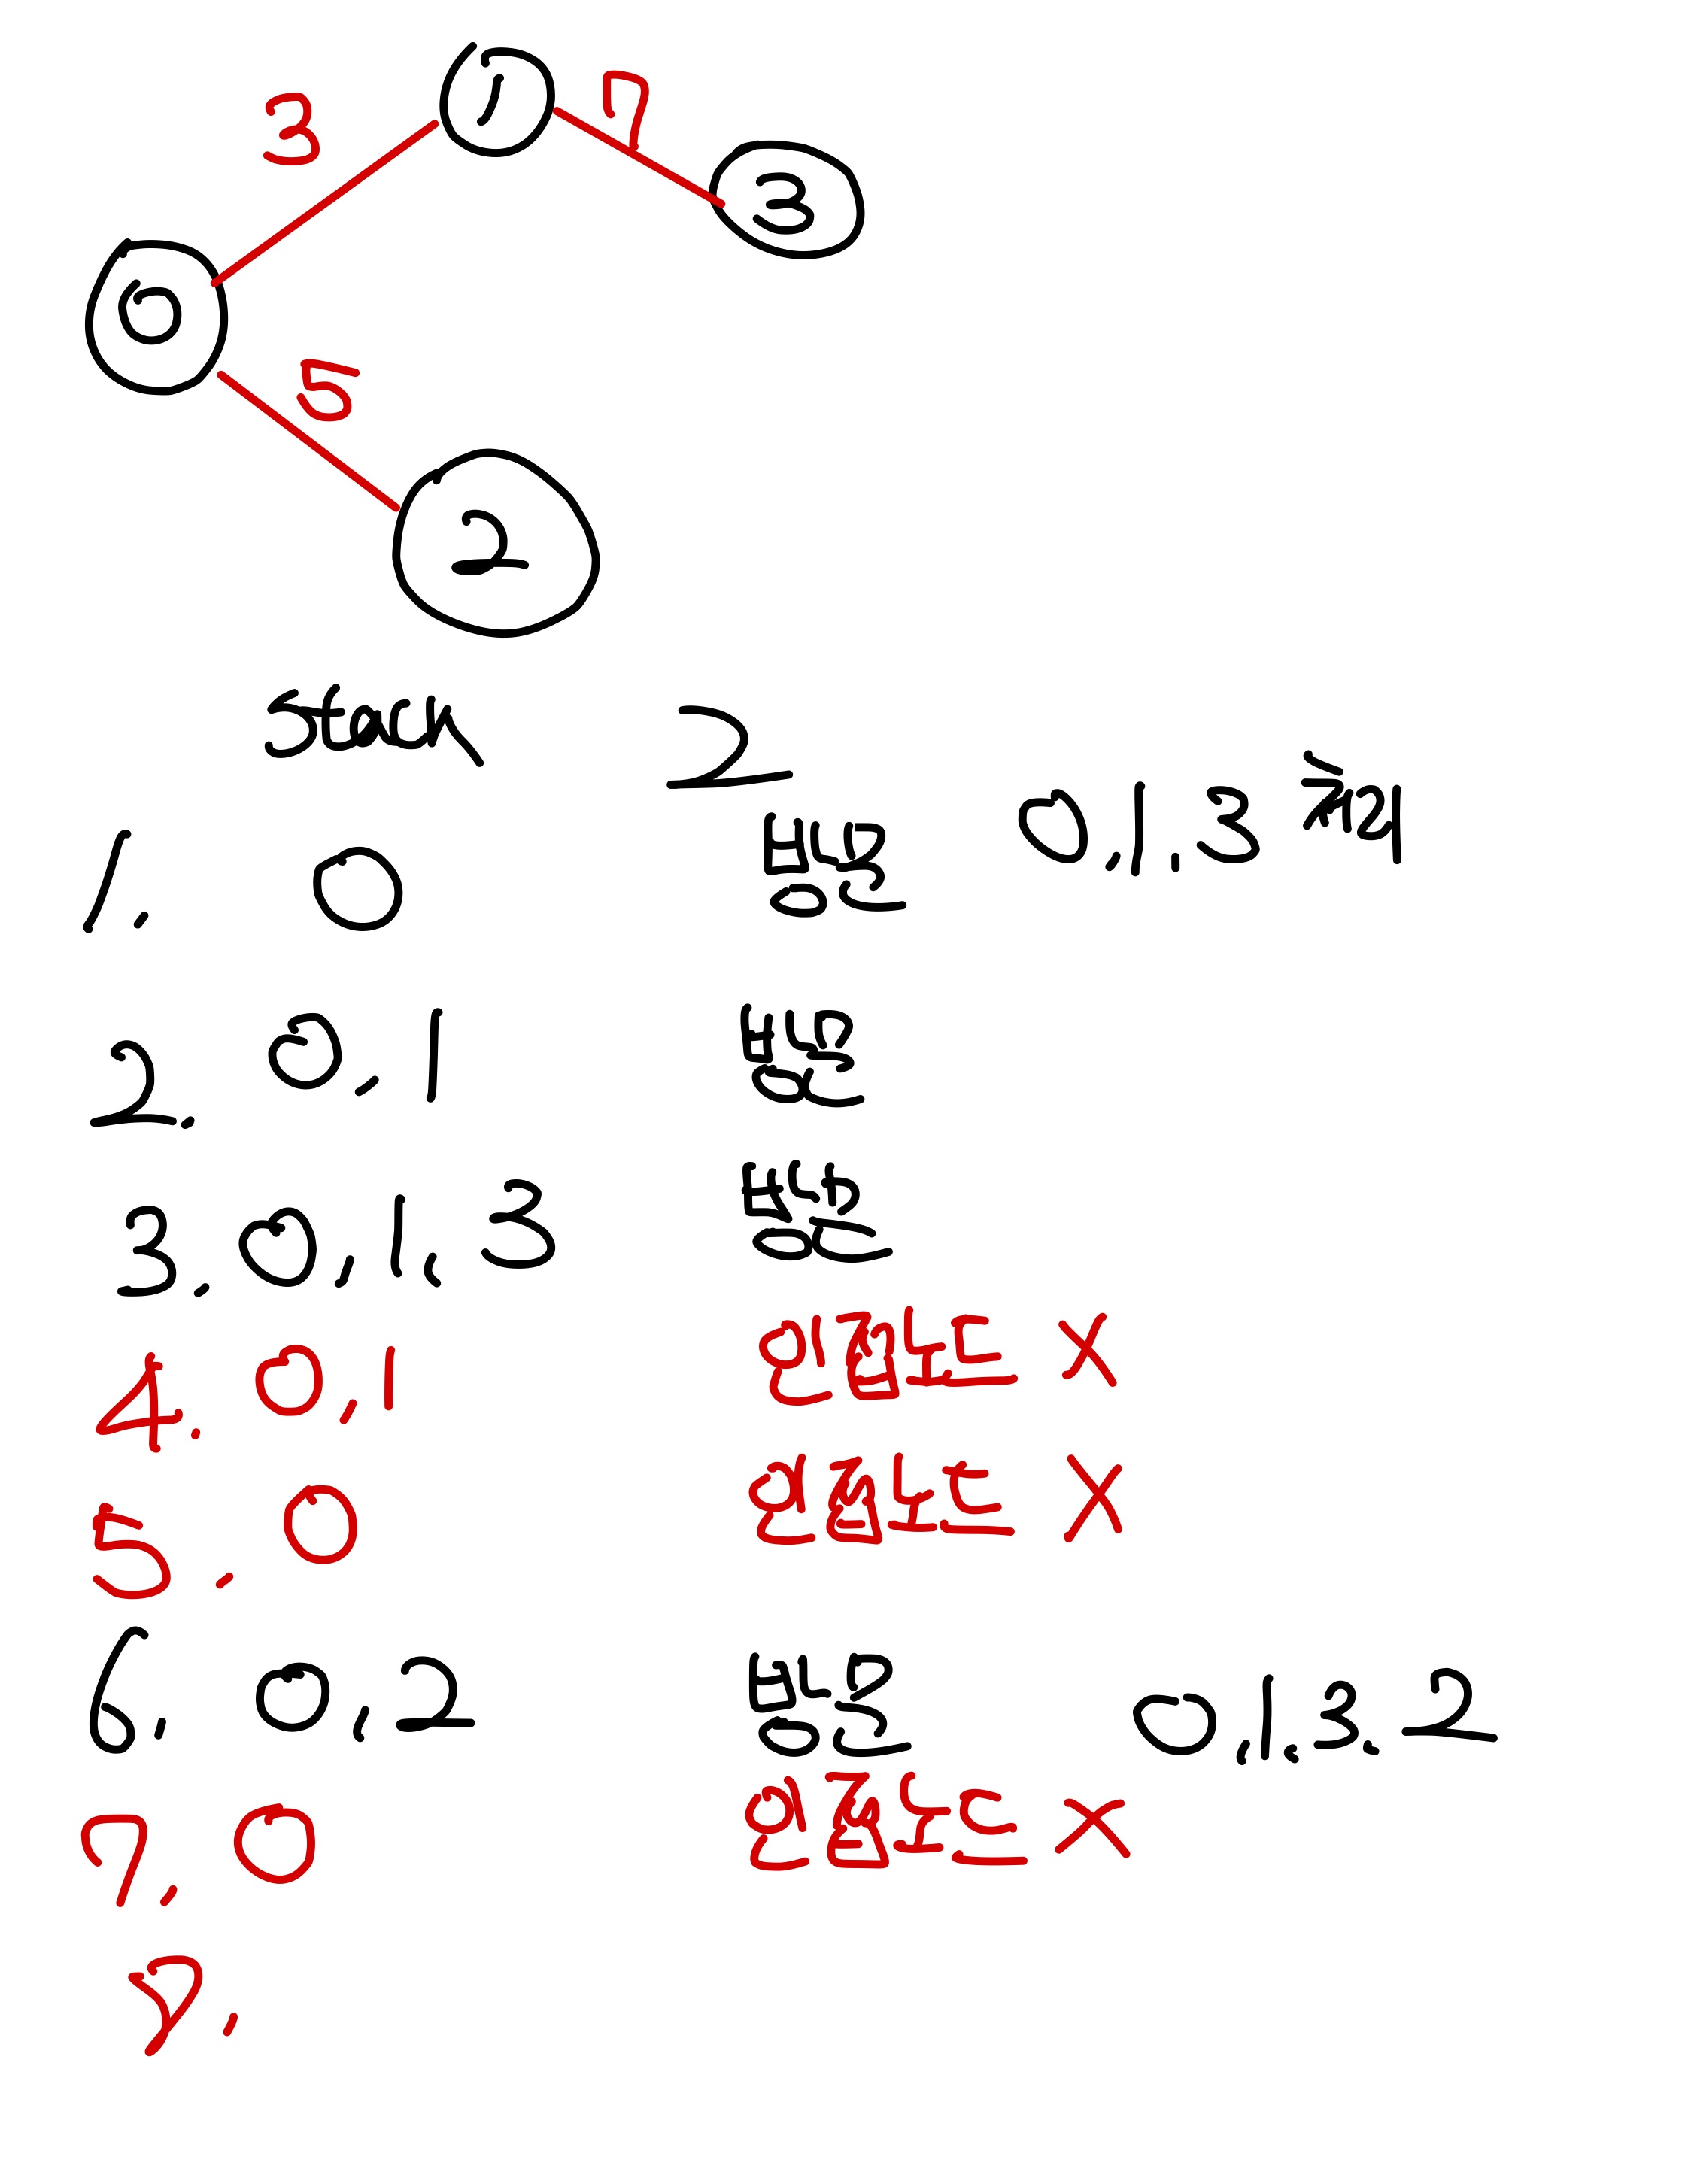 1
7
3
3
0
5
2
stack 2
1. 0 방문 0,1.3 출력
2. 0,1 방문
3. 0,1,3 방문
4. 0,1 인접노드 X
5. 0 인접노드 X
6. 0,2 방문 0,1,3,2
7. 0 인접노드 X
8.